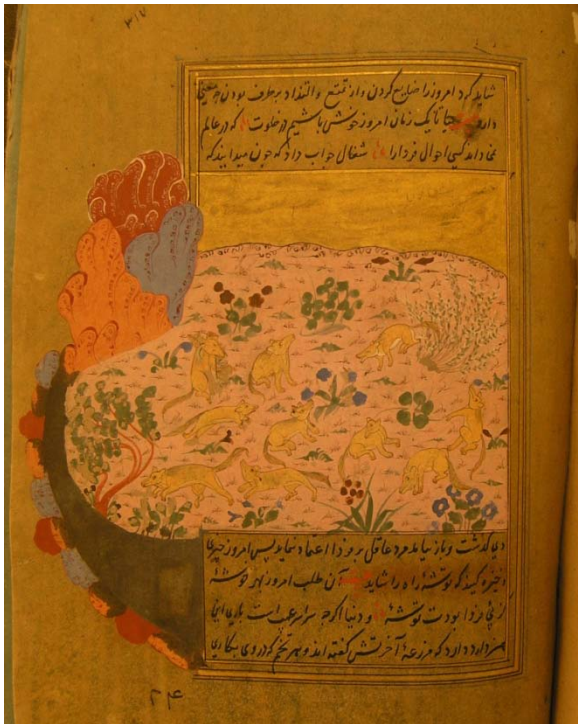 شاید کرد امروز را ضایع کردن و از تمتع و التذاذ برطرف بودن چه معنی
دارد بیا تا یک زمان امروز خوش باشیم در خلوت که در عالم
نمی‌داند کسی احوال فردا را شغال جواب داد که چون میدانید که
دی گذشت و باز نیاید مرد عاقل بر فردا اعتماد ننماید پس امروز چیزی
ذخیره کنید که توشهٔ راه را شاید آن طلب امروز بهر توشهٔ
کز پی فردا بودت توشهٔ و دنیا اگرچه سراسر عیب است باری این
هنر دارد که مزرعهٔ آخرتش گفته‌اند و هر تخم که در وی بکاری
۲۴